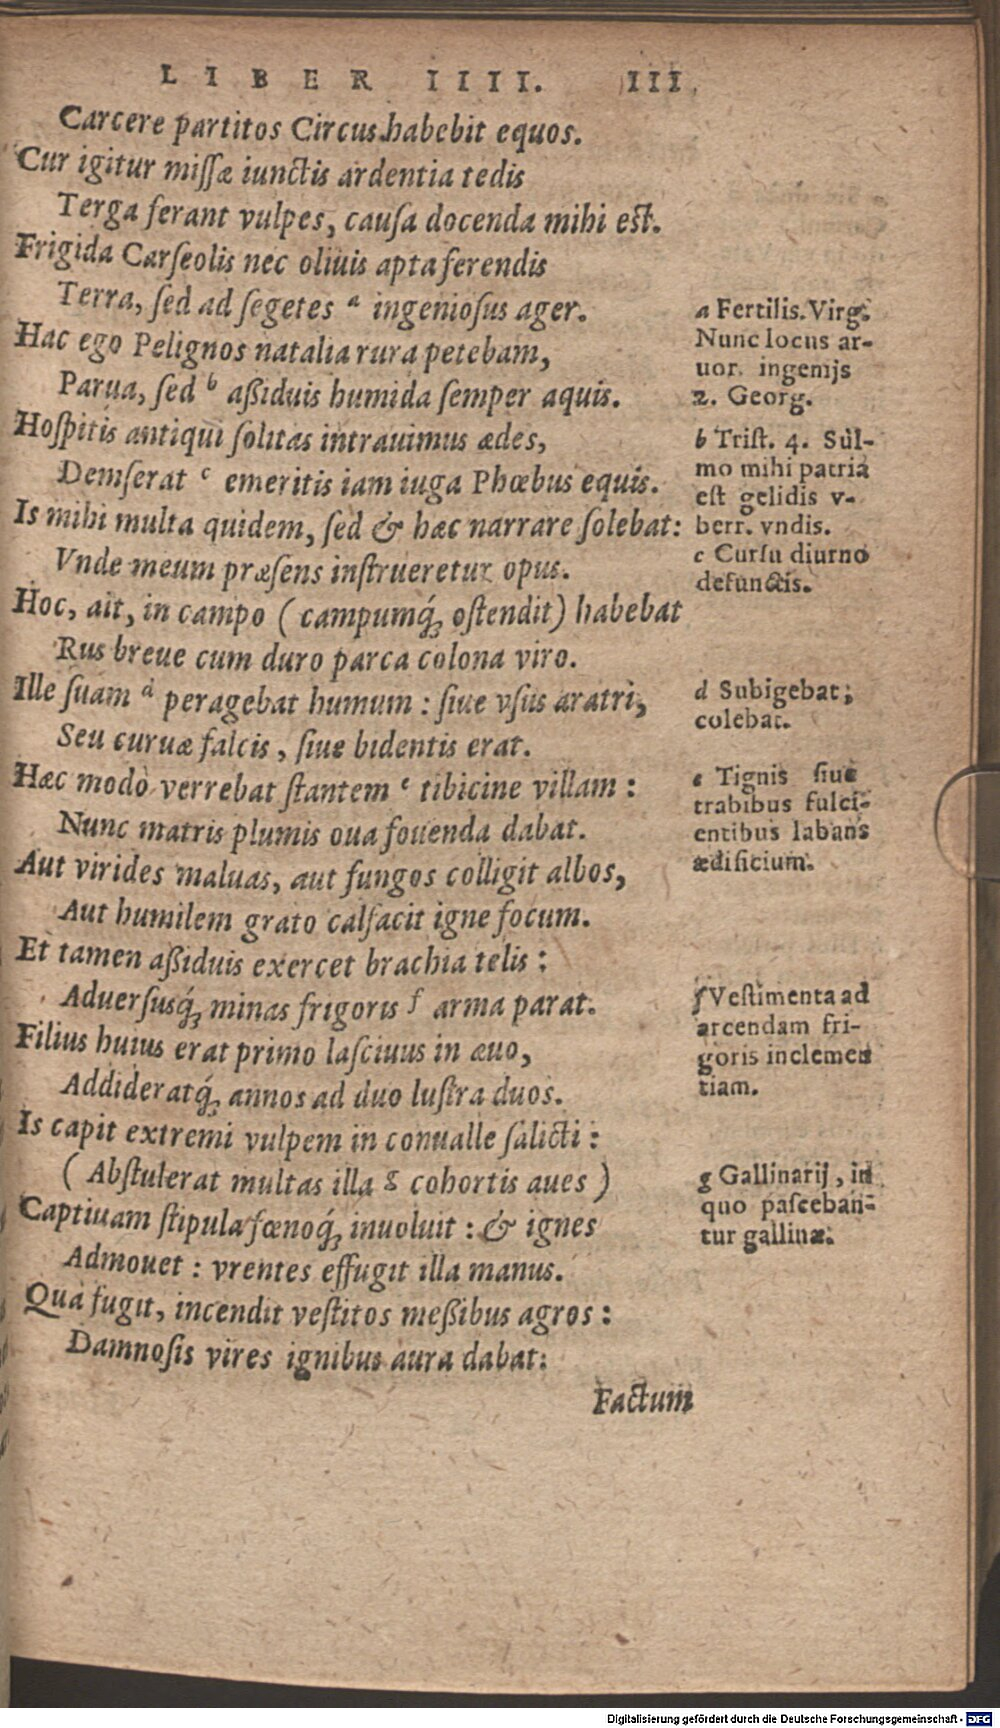 LIBER IIII. III.
Carcere partitos Circus habebit equos.
Cur igitur missæ iunctis ardentia tedis
Terga ferant vulpes, causa docenda mihi est.
Frigida Carseolis nec oliuis apta ferendis
Terra, sed ad segetes a ingeniosus ager.
Hac ego Pelignos natalia rura petebam,
Parua, sed b aßiduis humida semper aquis.
Hospitis antiqui solitas intrauimus ædes,
Demserat c emeritis iam iuga Phœbus equis.
Is mihi multa quidem, sed & hæc narrare solebat:
Vnde meum præsens instrueretur opus.
Hoc, ait, in campo (campumq́; ostendit) habebat
Rus breue cum duro parca colona viro.
Ille suam d peragebat humum : siue vsus aratri,
Seu curuæ falcis, siue bidentis erat.
Hæc modò verrebat stantem e tibicine villam :
Nunc matris plumis oua fouenda dabat.
Aut virides maluas, aut fungos colligit albos,
Aut humilem grato calfacit igne focum.
Et tamen aßiduis exercet brachia telis :
Aduersusq́; minas frigoris f arma parat.
Filius huius erat primo lasciuus in æuo,
Addideratq́; annos ad duo lustra duos.
Is capit extremi vulpem in conualle salicti :
( Abstulerat multas illa g cohortis aues )
Captiuam stipula fœnoq́; inuoluit : & ignes
Admouet : vrentes effugit illa manus.
Quà fugit, incendit vestitos meßibus agros :
Damnosis vires ignibus aura dabat:
Factum
a Fertilis. Virg.
Nunc locus ar-
uor. ingenijs
2. Georg.
b Trist. 4. Sul-
mo mihi patria
est gelidis v-
berr. vndis.
c Cursu diurno
defunctis.
d Subigebat,
colebat.
e Tignis siue
trabibus fulci-
entibus labans
ædificium.
f Vestimenta ad
arcendam fri-
goris inclemen
tiam.
g Gallinarij, in
quo pasceban-
tur gallinæ.
Digitalisierung gefördert durch die Deutsche Forschungsgemeinschaft - DFG